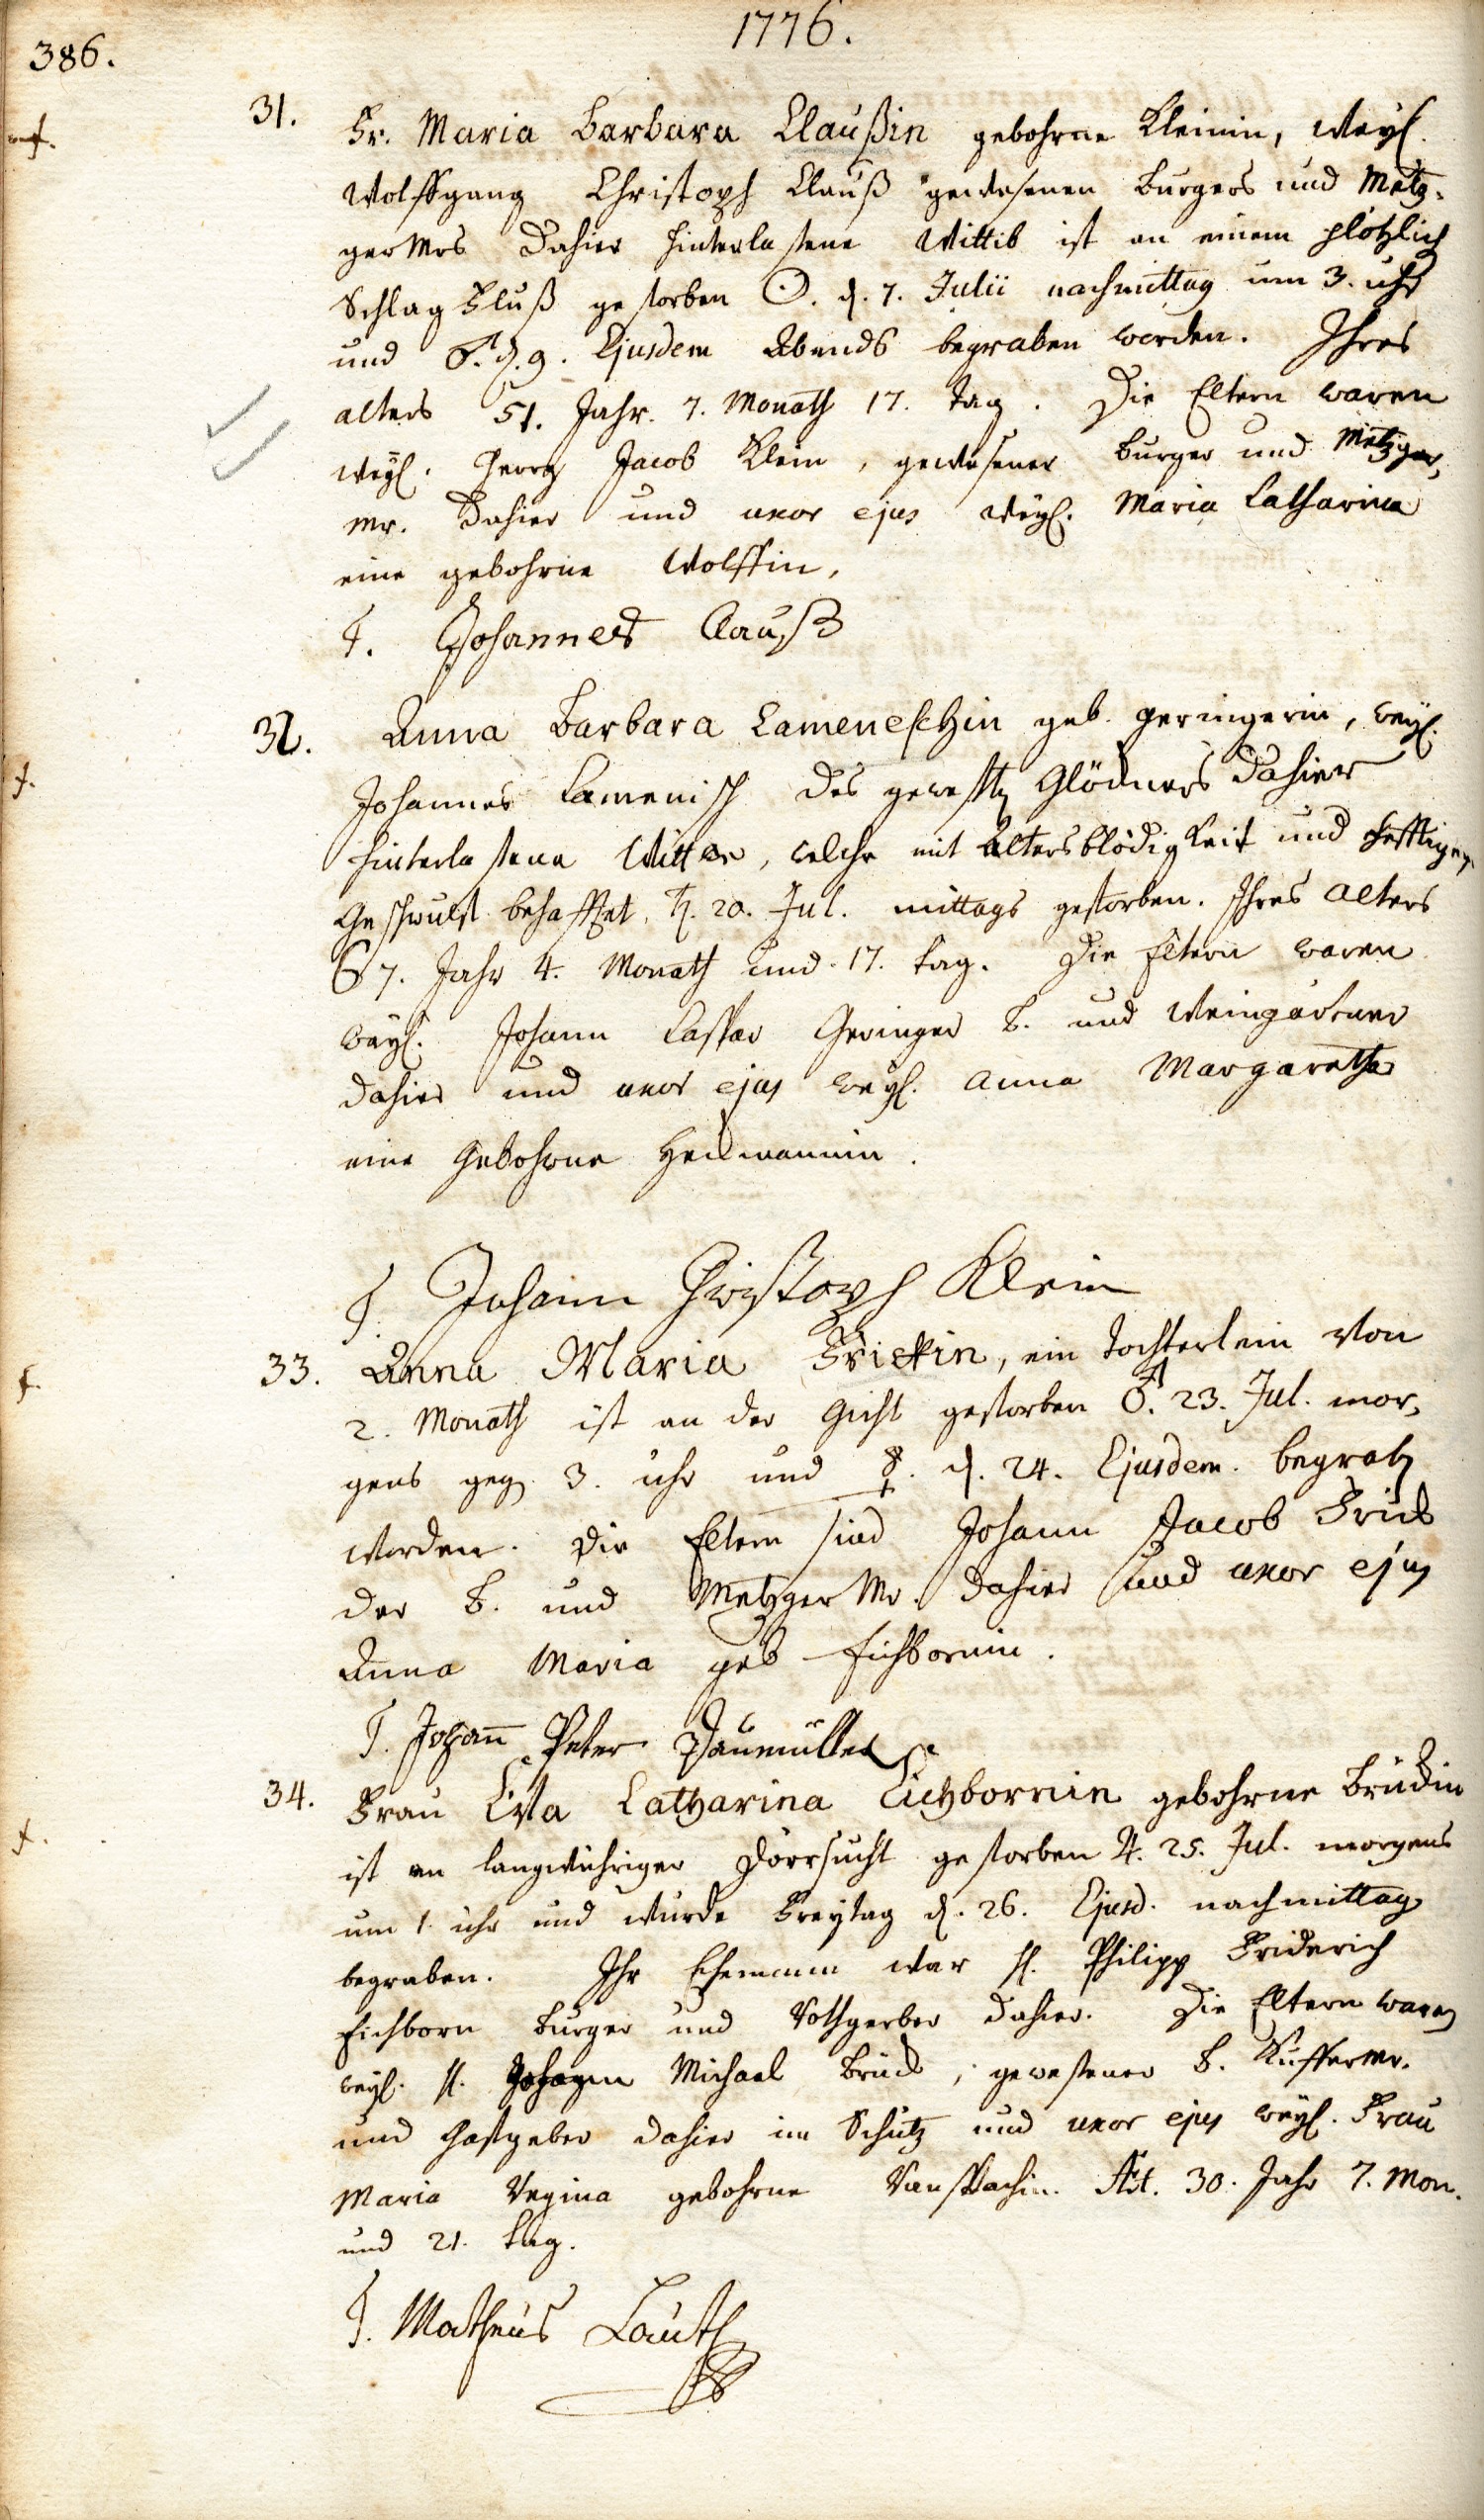 1776.
386.
31. Fr. Maria Barbara Claußin gebohrne Kleinin, weyl.
Wolffgang Christoph Clauß gewesenen burgers und Metz-
germrs dahier hinterlaßene Wittib ist an einem plötzlich
Schlag Fluß gestorben ☉. d. 7. Julii nachmittag um 3. uhr
und ♂. d. 9. Ejusdem Abends begraben worden. Ihres
alters 51. Jahr. 7. Monath 17. tag. Die Eltern waren
weyl. Georg Jacob Klein, gewesener burger und Metzger,
Mr. dahier und uxor ejus weyl. Maria Catharina
eine gebohrne Wolffin.
T. Johannes Clauß
32. Anna Barbara Lameneschin geb. Geringerin, weyl.
Johannes Lamenisch des geweßn Glöckners dahier
hinterlaßene Wittwe, welche mit Altersblödigkeit und hefftiger
Geschwulst behafftet, ♄. 20. Jul. mittags gestorben. Ihres alters
67. Jahr 4. Monath und 17. tag. Die Eltern waren
weyl. Johann Caspar Geringer b. und Weingärtner
dahier und uxor ejus weyl. Anna Margaretha
eine gebohrne Heilmannin.
T. Johann Christoph Klein
33. Anna Maria Frickin, ein Tochterlein von
2. Monath ist an der Gicht gestorben ♂. 23. Jul. mor,
gens geg. 3. uhr und ☿. d. 24. Ejusdem. begrabn
worden. Die Eltern sind Johann Jacob Frick
der b. und Metzger Mr. dahier und uxor ejus
Anna Maria geb Eichbornin.
T. Johann Peter Daumüller
34. Frau Eva Catharina Eichbornin gebohrne Brückin
ist an langwühriger Dörrsucht gestorben ♃. 25. Jul. morgens
um 1. uhr und wurde Freytag d. 26. Ejusd. nachmittag
begraben. Ihr Ehemann war H. Philipp Friderich
Eichborn burger und Rothgerber dahier. Die Eltern waren
weyl. H. Johann Michael Brück, gewesener b. Kuffermr.
und Gastgeber dahier im Schütz und uxor ejus weyl. Frau
Maria Regina gebohrne Ranspachin. Aet. 30. Jahr 7. Mon.
und 21. tag.
T. Matheus Lauth